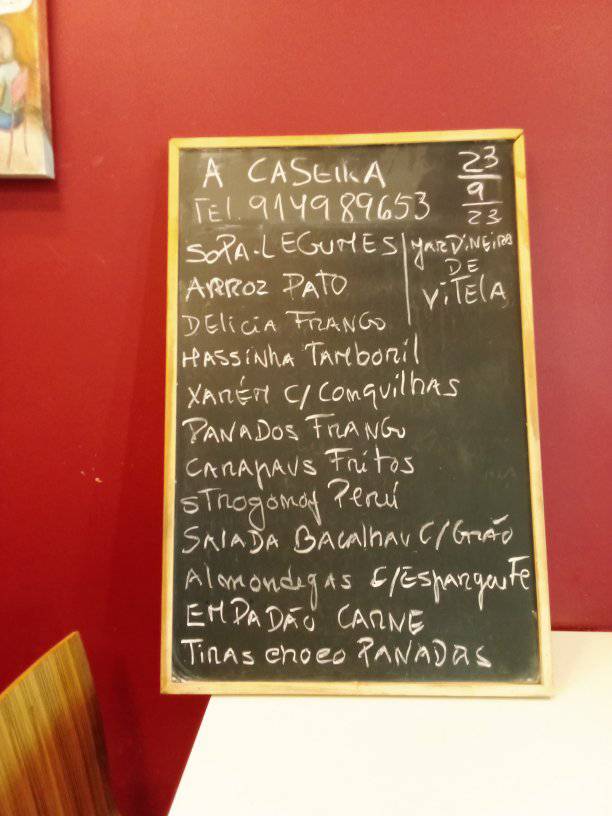 A CASEIRA
TEL. 914989653
23
9
23
SOPA-LEGUMES
ARROZ PATO
DELICIA FRANGO
MASSINHA TAMBORIL
XARÉM C/ CONQUILHAS
PANADOS FRANGO
CARAPAUS FRITOS
STROGONOF PERÚ
SALADA BACALHAU C/GRÃO
ALMONDEGAS C/ESPARGUETE
EMPADÃO CARNE
TIRAS CHOCO PANADAS
YARDINEIRA
DE
VITELA